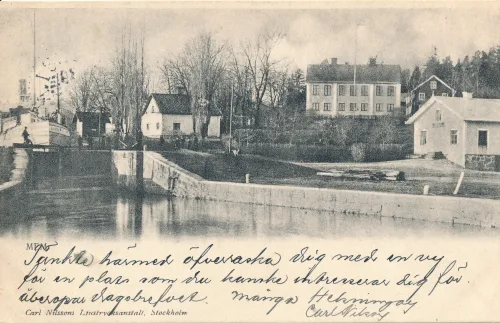 MEM
Tänkte härmed öfverraska dig med en vy
för en plats som du kanske intresserar dig för.
åberopar dagsbrefvet. många Helsningar
Carl Nilssons Ljustrycksanstalt, Stockholm
Carl